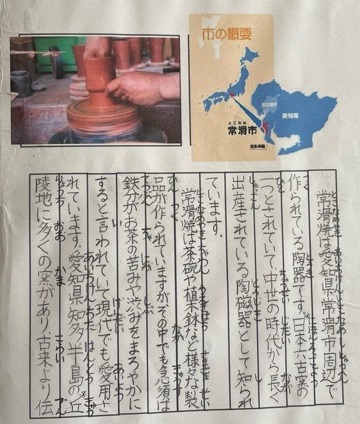 市の概要
愛知県
とこなめ
常滑市
知多半島
常滑焼は愛知県常滑市周辺で
作られている陶器です。日本六古窯の
一つとされていて、中世の時代から長く
出産されている陶磁器として知られ
ています。
常滑焼は茶碗や植木鉢など様々な製
品が作られていますが、その中でも急須は
鉄分がお茶の苦みや渋みをまろやかに
すると言われていて現代でも愛用さ
れています。愛知県知多半島の丘
陵地に多くの窯があり、古来より伝